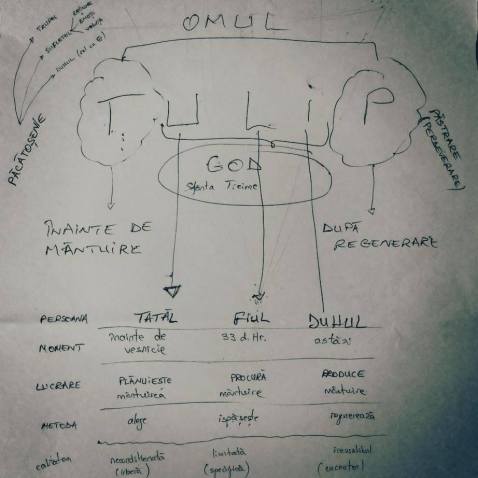 OMUL
TRUPUL
SUFLETUL
DUHUL
RAȚIUNE
VOINȚĂ
PĂCĂTOȘENIE
T U L I P
PĂSTRARE
(PERSEVERARE)
GOD
Sfânta Treime
ÎNAINTE DE
MÂNTUIRE
DUPĂ
REGENERARE
PERSOANA TATĂL FIUL DUHUL
MOMENT înainte de veșnicie 33 d. Hr. astăzi
LUCRARE PLĂNUIEȘTE mântuirea PROCURĂ mântuire PRODUCE mântuire
METODA alege ispășește regenerează
calitatea necondiționată (liberă) limitată (specifică) irezistibil